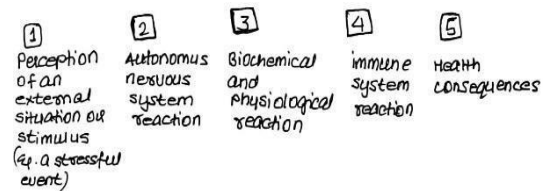 1
Perception
of an
external
situation or
stimulus
(eg. a stressful
event)
2
Autonomus
nervous
system
reaction
3
Biochemical
and
physiological
reaction
4
immune
system
reaction
5
Health
consequences